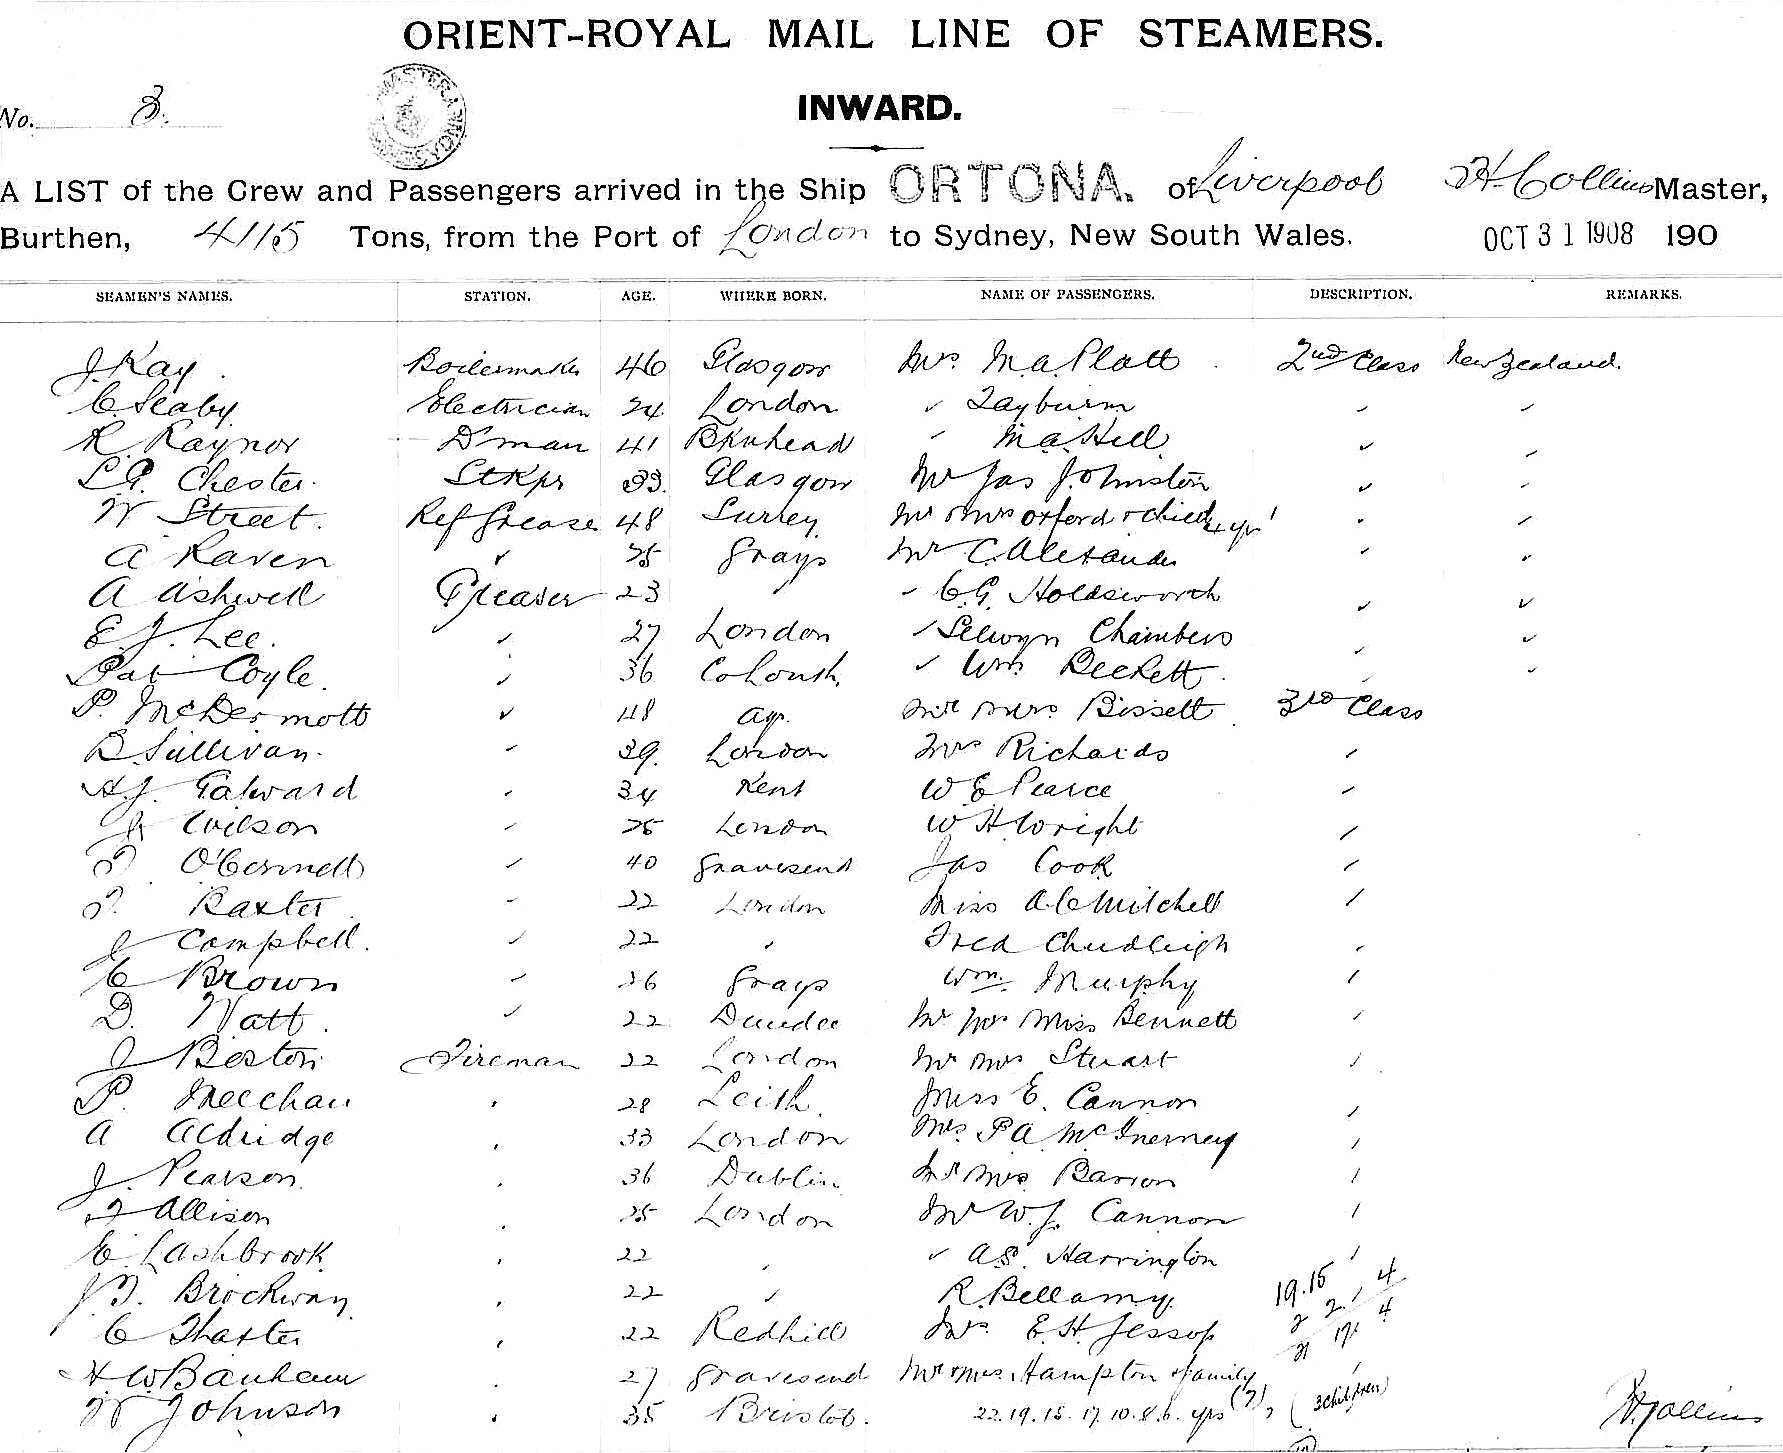 ORIENT-ROYAL MAIL LINE OF STEAMERS.
No. 3.
INWARD.
A LIST of the Crew and Passengers arrived in the Ship ORTONA. of Liverpool H Collins Master,
Burthen, 4115 Tons, from the Port of London to Sydney, New South Wales. OCT 31 1908 190
SEAMEN'S NAMES. STATION. AGE. WHERE BORN. NAME OF PASSENGERS. DESCRIPTION. REMARKS.
J. Kay Boilermaker 46 Glasgow Mrs. M.A. Platt 2nd Class New Zealand.
C Seaby Electrician 24 London " Tayburn " "
R. Raynor D'man 41 Bknhead " M.A. Hill " "
Chester. Stkpr 33. Glasgow Mr Jas Johnston " "
W Street. Ref Greaser 48 Surrey Mr Mrs Oxford & child 4 yrs " "
A Raven " 25 Grays Mr C. Alexander " "
A Ashwell Greaser 23 " C.G. Holdsworth " "
E. J. Lee. " 27 London " Selwyn Chambers " "
Pat Coyle. " 36 " Wm Beckett. " "
P. McDermott " 48 Ayr. Mr Mrs Bissett 3rd Class
B Sullivan. " 39. London Mrs Richards "
A.J. Galward " 34 Kent W E Pearce "
Wilson " 25 London W H Wright "
T. O'Connell " 40 Gravesend Jas Cook "
T. Baxter " 22 London Miss A.C. Mitchell "
J Campbell. " 22 " Fred Chudleigh "
C Brown " 26 Grays Wm. Murphy "
D. Watt. " 22 Dundee Mr Mrs Miss Bennett "
J Beston Fireman 22 London Mr Mrs Stuart "
P. Meechan " 28 Leith. Miss E. Cannon "
A Aldridge " 33 London Mrs. P A McInerney "
J. Pearson " 36 Dublin Mr Mrs Barron "
J Allison " 25 London Mr W.J. Cannon "
E. Lashbrook " 22 " " A S. Harrington "
Brockway " 22 " R. Bellamy. 19.15 4
C Thaxter " 22 Redhill Mrs. E.H. Jessop
H. W Banham " 27 Gravesend Mr Mrs. Hampton & family "
W Johnson " 35 Bristol. 22.19.15.17.10.8.6. yrs (7), (3 children)
H Collins